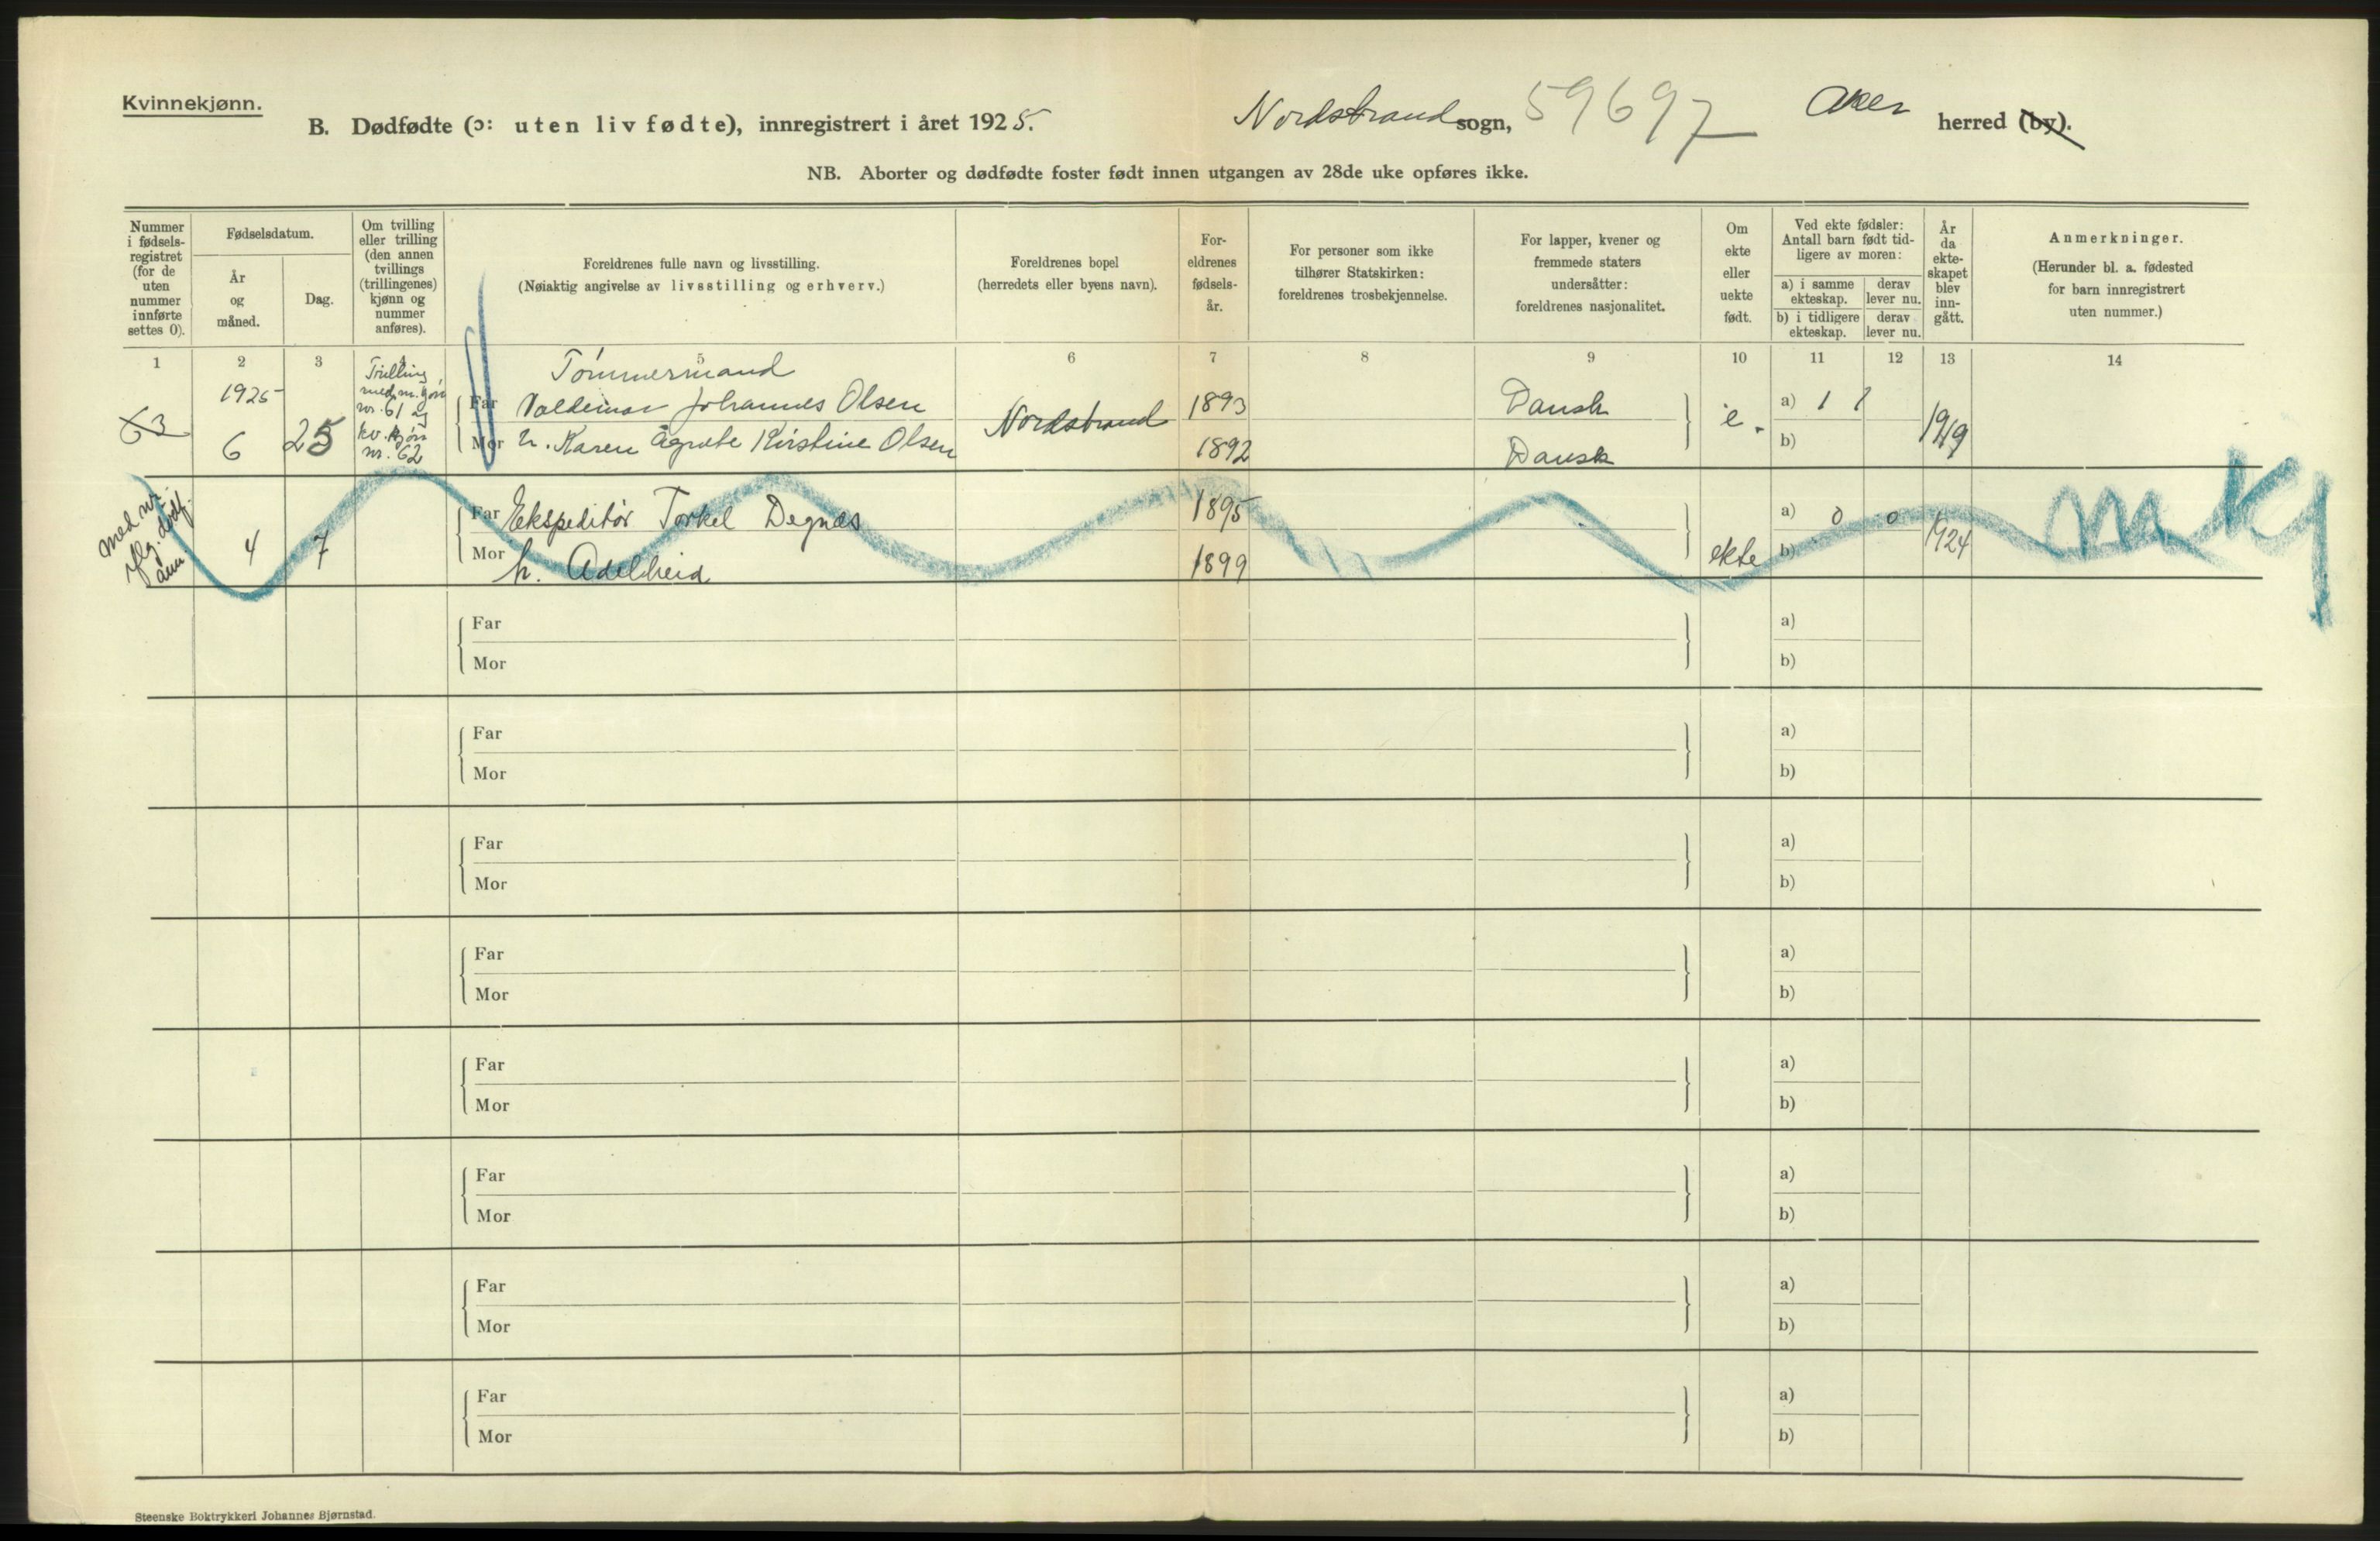 Kvinnekjønn.
B. Dødfødte (ɔ: uten liv fødte), innregistrert i året 1925.
Nordstrand sogn, 59697 Aker herred (by).
NB. Aborter og dødfødte foster født innen utgangen av 28de uke opføres ikke.
Nummer i fødsels-registret (for de uten nummer innførte settes 0).
Fødselsdatum.
År og måned.
Dag.
Om tvilling eller trilling (den annen tvillings (trillingenes) kjønn og nummer anføres).
Foreldrenes fulle navn og livsstilling.
(Nøiaktig angivelse av livsstilling og erhverv.)
Foreldrenes bopel
(herredets eller byens navn).
For-eldrenes fødsels-år.
For personer som ikke tilhører Statskirken: foreldrenes trosbekjennelse.
For lapper, kvener og fremmede staters undersåtter: foreldrenes nasjonalitet.
Om ekte eller uekte født.
Ved ekte fødsler: Antall barn født tid-ligere av moren:
a) i samme ekteskap.
derav lever nu.
b) i tidligere ekteskap.
derav lever nu.
År da ekte-skapet blev inn-gått.
Anmerkninger.
(Herunder bl. a. fødested for barn innregistrert uten nummer.)
1 2 3 4 5 6 7 8 9 10 11 12 13 14
63 1925 6 25
Trilling med m. kjøn nr. 61 og kv. kjøn nr. 62
Tømmermand
Far Valdemar Johannes Olsen Nordstrand 1893 Dansk e. a) 1 1 1919
Mor h. Karen Agnete Kirstine Olsen 1892 Dansk b)
med nr.
dødf.
4 7
Far Ekspeditør Torkel Degnes 1895 a) 0 0 1924
Mor h. Adelheid 1899 ekte b)
Far a)
Mor b)
Far a)
Mor b)
Far a)
Mor b)
Far a)
Mor b)
Far a)
Mor b)
Far a)
Mor b)
Far a)
Mor b)
Far a)
Mor b)
Steenske Boktrykkeri Johannes Bjørnstad.